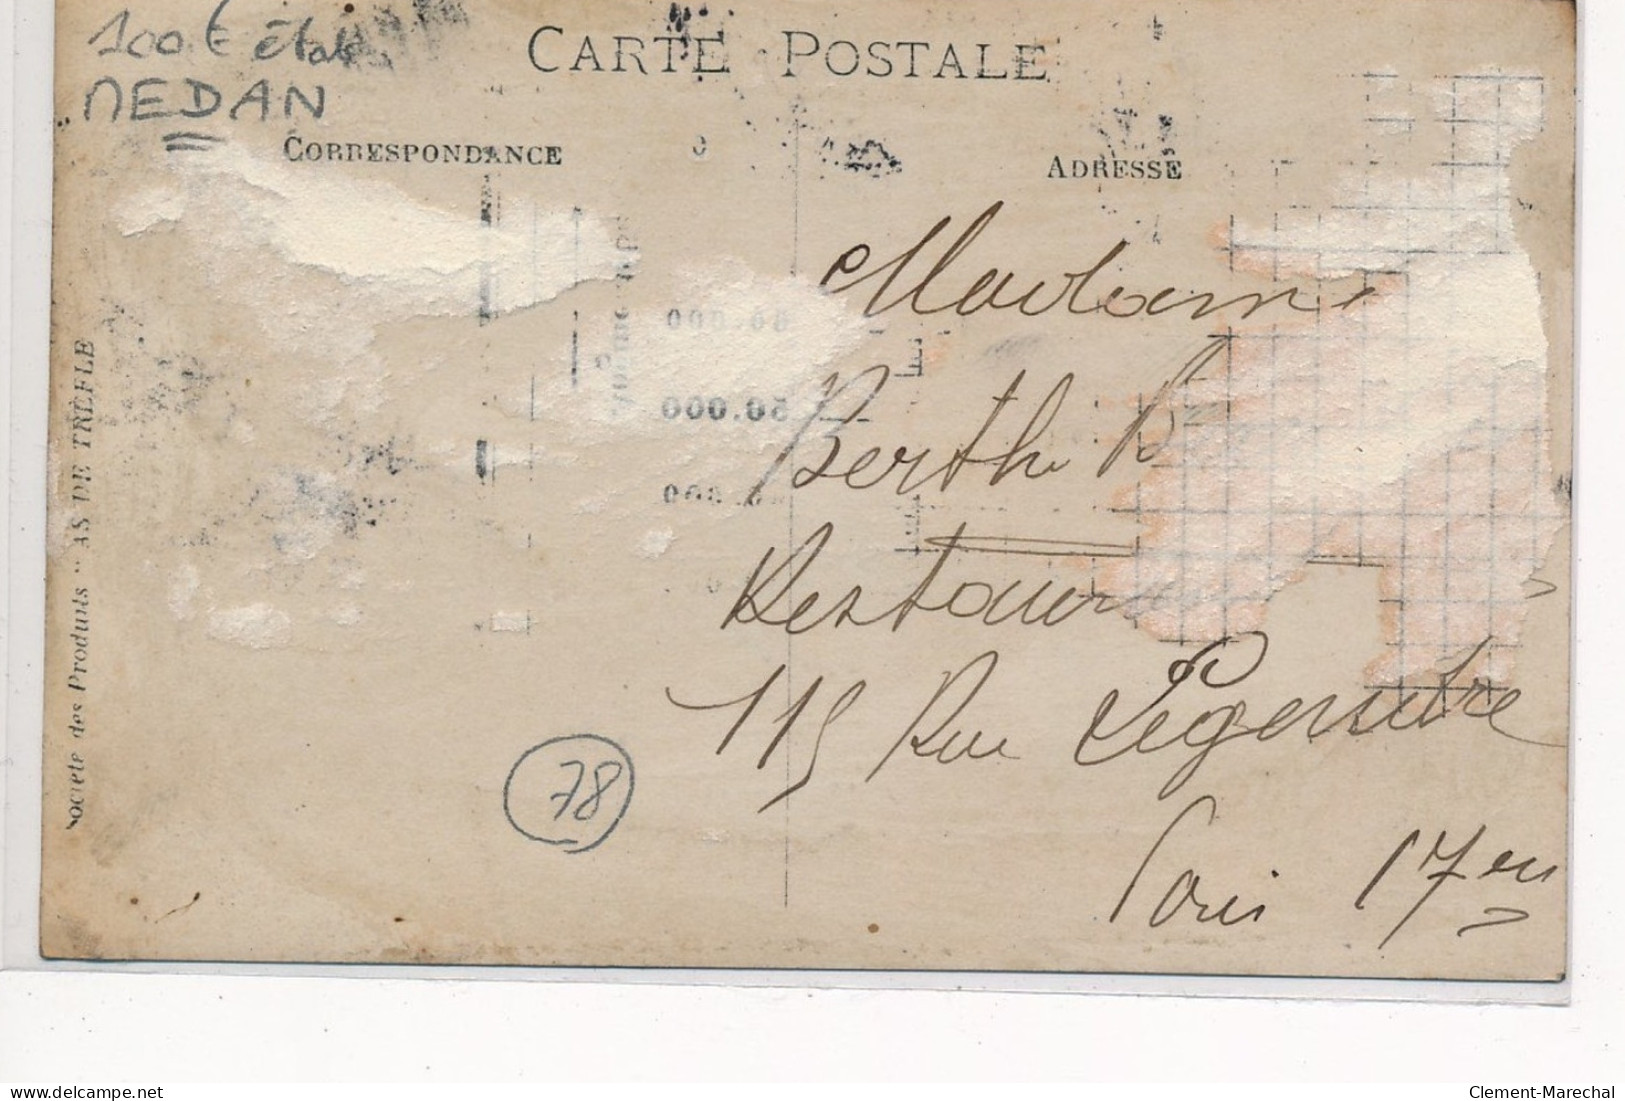 100 € état
MEDAN
CARTE POSTALE
CORRESPONDANCE
ADRESSE
Société des Produits "AS DE TRÈFLE
Madame
Berthe B
Restaur
115 Rue Légendre
Paris 17 en
78
00.000
50.000
Clement-Marechal